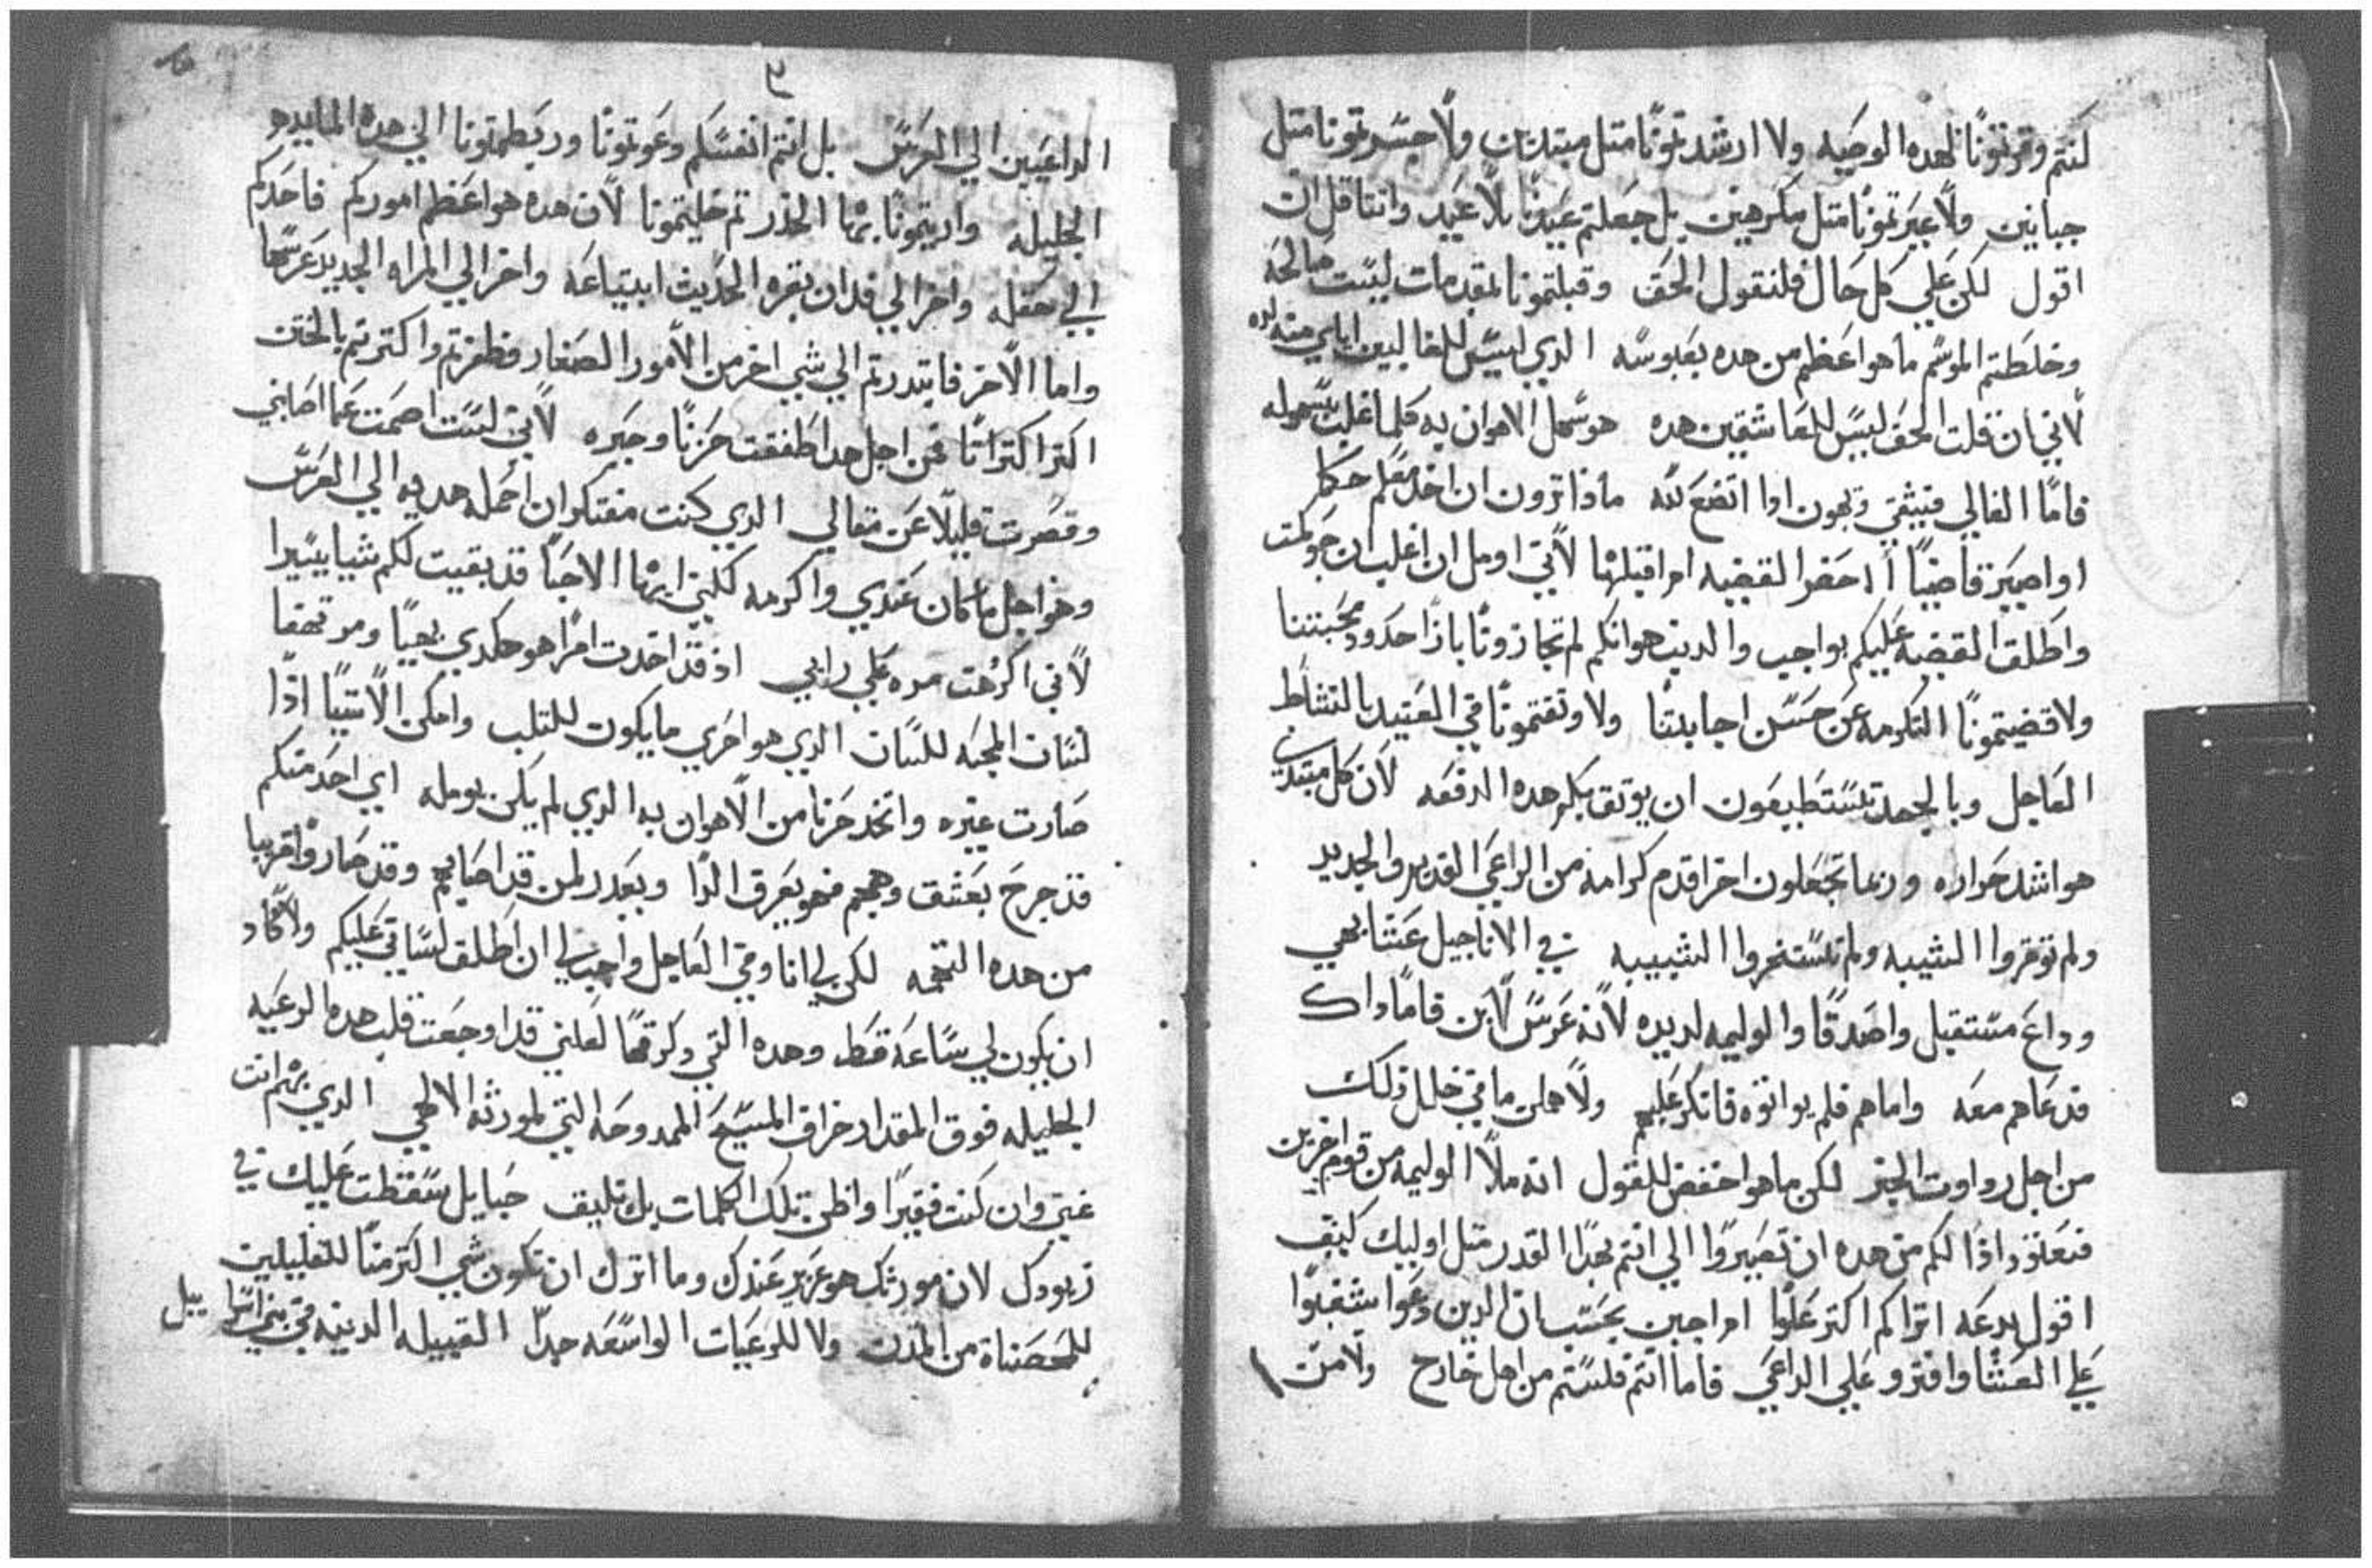 كنتم وقرتونا لهده الوصيه ولا ارشدتمونا متل مبتديين ولا جسرتمونا متل
جبانين ولا عيرتمونا متل مكرهين بل جعلتم عيدنا بلا عيد وانتاقل ان
اقول لكن علي كل حال فلنقول الحق وقبلتمونا بمقدمات ليست صالحه
وخلطتم الموسم ما هو اعظم من هده بعبوسه الدي ليس للغالبين اياي منه لده
لاني ان قلت الحق ليس للعاشقين هده هو سهل الاهوان به كلما اغلب بسهوله
فاما الغالي فيبقي ويهون ادا اتضع لله ماذا ترون ان اخد معكم حكما
او اصير قاضيا ا احضر القضيه ام اقبلها لاني اومل ان اغلب ان حوكمت
واطلق القضيه عليكم بواجب والدين هوانكم لم تجازونا باذا حدود محبتننا
ولا قضيتمونا التكرمه عن حسن اجابتنا ولا وتقتمونا في العتيد بالنشاط
العاجل وبالجهد تستطيعون ان يوتق بكم هده الدفعه لان كل مبتدي
هو اشد حراره وربما تجعلون اخر اقدم كرامه من الراعي القديم والجديد
ولم توقروا الشيبه ولم تستنهروا الشبيبه في الاناجيل عشا بهي
وداع مستقبل واصدقا والوليمه لديده لانه عرس لابن فاما داك
قد عاهم معه واما هم فلم يوافوه فانكر عليهم ولاهلن ما في خلال ذلك
من اجل رداوت الخبر لكن ما هو اخفض للقول انه ملا الوليمه من قوم اخرين
فنعوذ اذا لكم من هده ان تصيروا الي انتم بهدا القدر متل اوليك كيف
اقول بدعه اتراكم اكتر علوا ام اجبن بحسب ان الدين دعوا شغبوا
علي العشا وافترو علي الداعي فاما انتم فلستم من اهل خارج ولا من
الداعيين الي العرس بل انتم انفسكم دعوتونا وربطمتونا الي هده المايده
الجليله واريتمونا بها الحدر تم خليتمونا لان هده هو اعظم اموركم فاحدكم
الي حقله واخر الي فدان بقره الحديث ابتياعه واخر الي المراه الجديد عرسها
واما الاخر فابتدرتم الي شي اخر من الامور الصغار فظفرتم واكترتم بالختن
اكتر اكتراتا فمن اجل هدا طفقت حزنا وحيره لاني لست اصمت عما اصابني
وقصرت قليلا عن مقالي الدي كنت مفتكر ان احمله هديه الي العرس
وهو اجل ما كان عندي واكرمه لكني ايها الاحبا قد بقيت لكم شيا يسيرا
لاني اكرهت مره علي رايي اذ قد اخدت امرا هو حكدي بهيا ومرتهفا
لسان المحبه للسان الدي هو احري ما يكون للتلب وامكن الاشيا اذا
صارت غيره واتخد حزنا من الاهوان به الدي لم يكن يومله اي احد منكم
قد جرح بعشق وهجم فهو يعرف الدا ويعدر لمن قد اصابهم وقد صاروا قريبا
من هده التهمه لكن لي انا وفي العاجل واجب لي ان اطلق لساني عليكم ولا كاد
ان يكون لي ساعه قط وهده التي دكرتها لعلني قد اوجعت قلب هده الرعيه
الجليله فوق المقدار خراف المسيح الممدوحه التي لمورثه الالهي الدي بهم انت
غني وان كنت فقيرا واظن تلك الكلمات بك تليف حبايل سقطت عليك في
زبودك لان مورثك هو عزيز عندك وما اترك ان تكون شي اكتر منا للتعليلين
للحصناة من المدن ولا للرعيات الواسعه جدا القبيله الدنيه في بني اسراييل